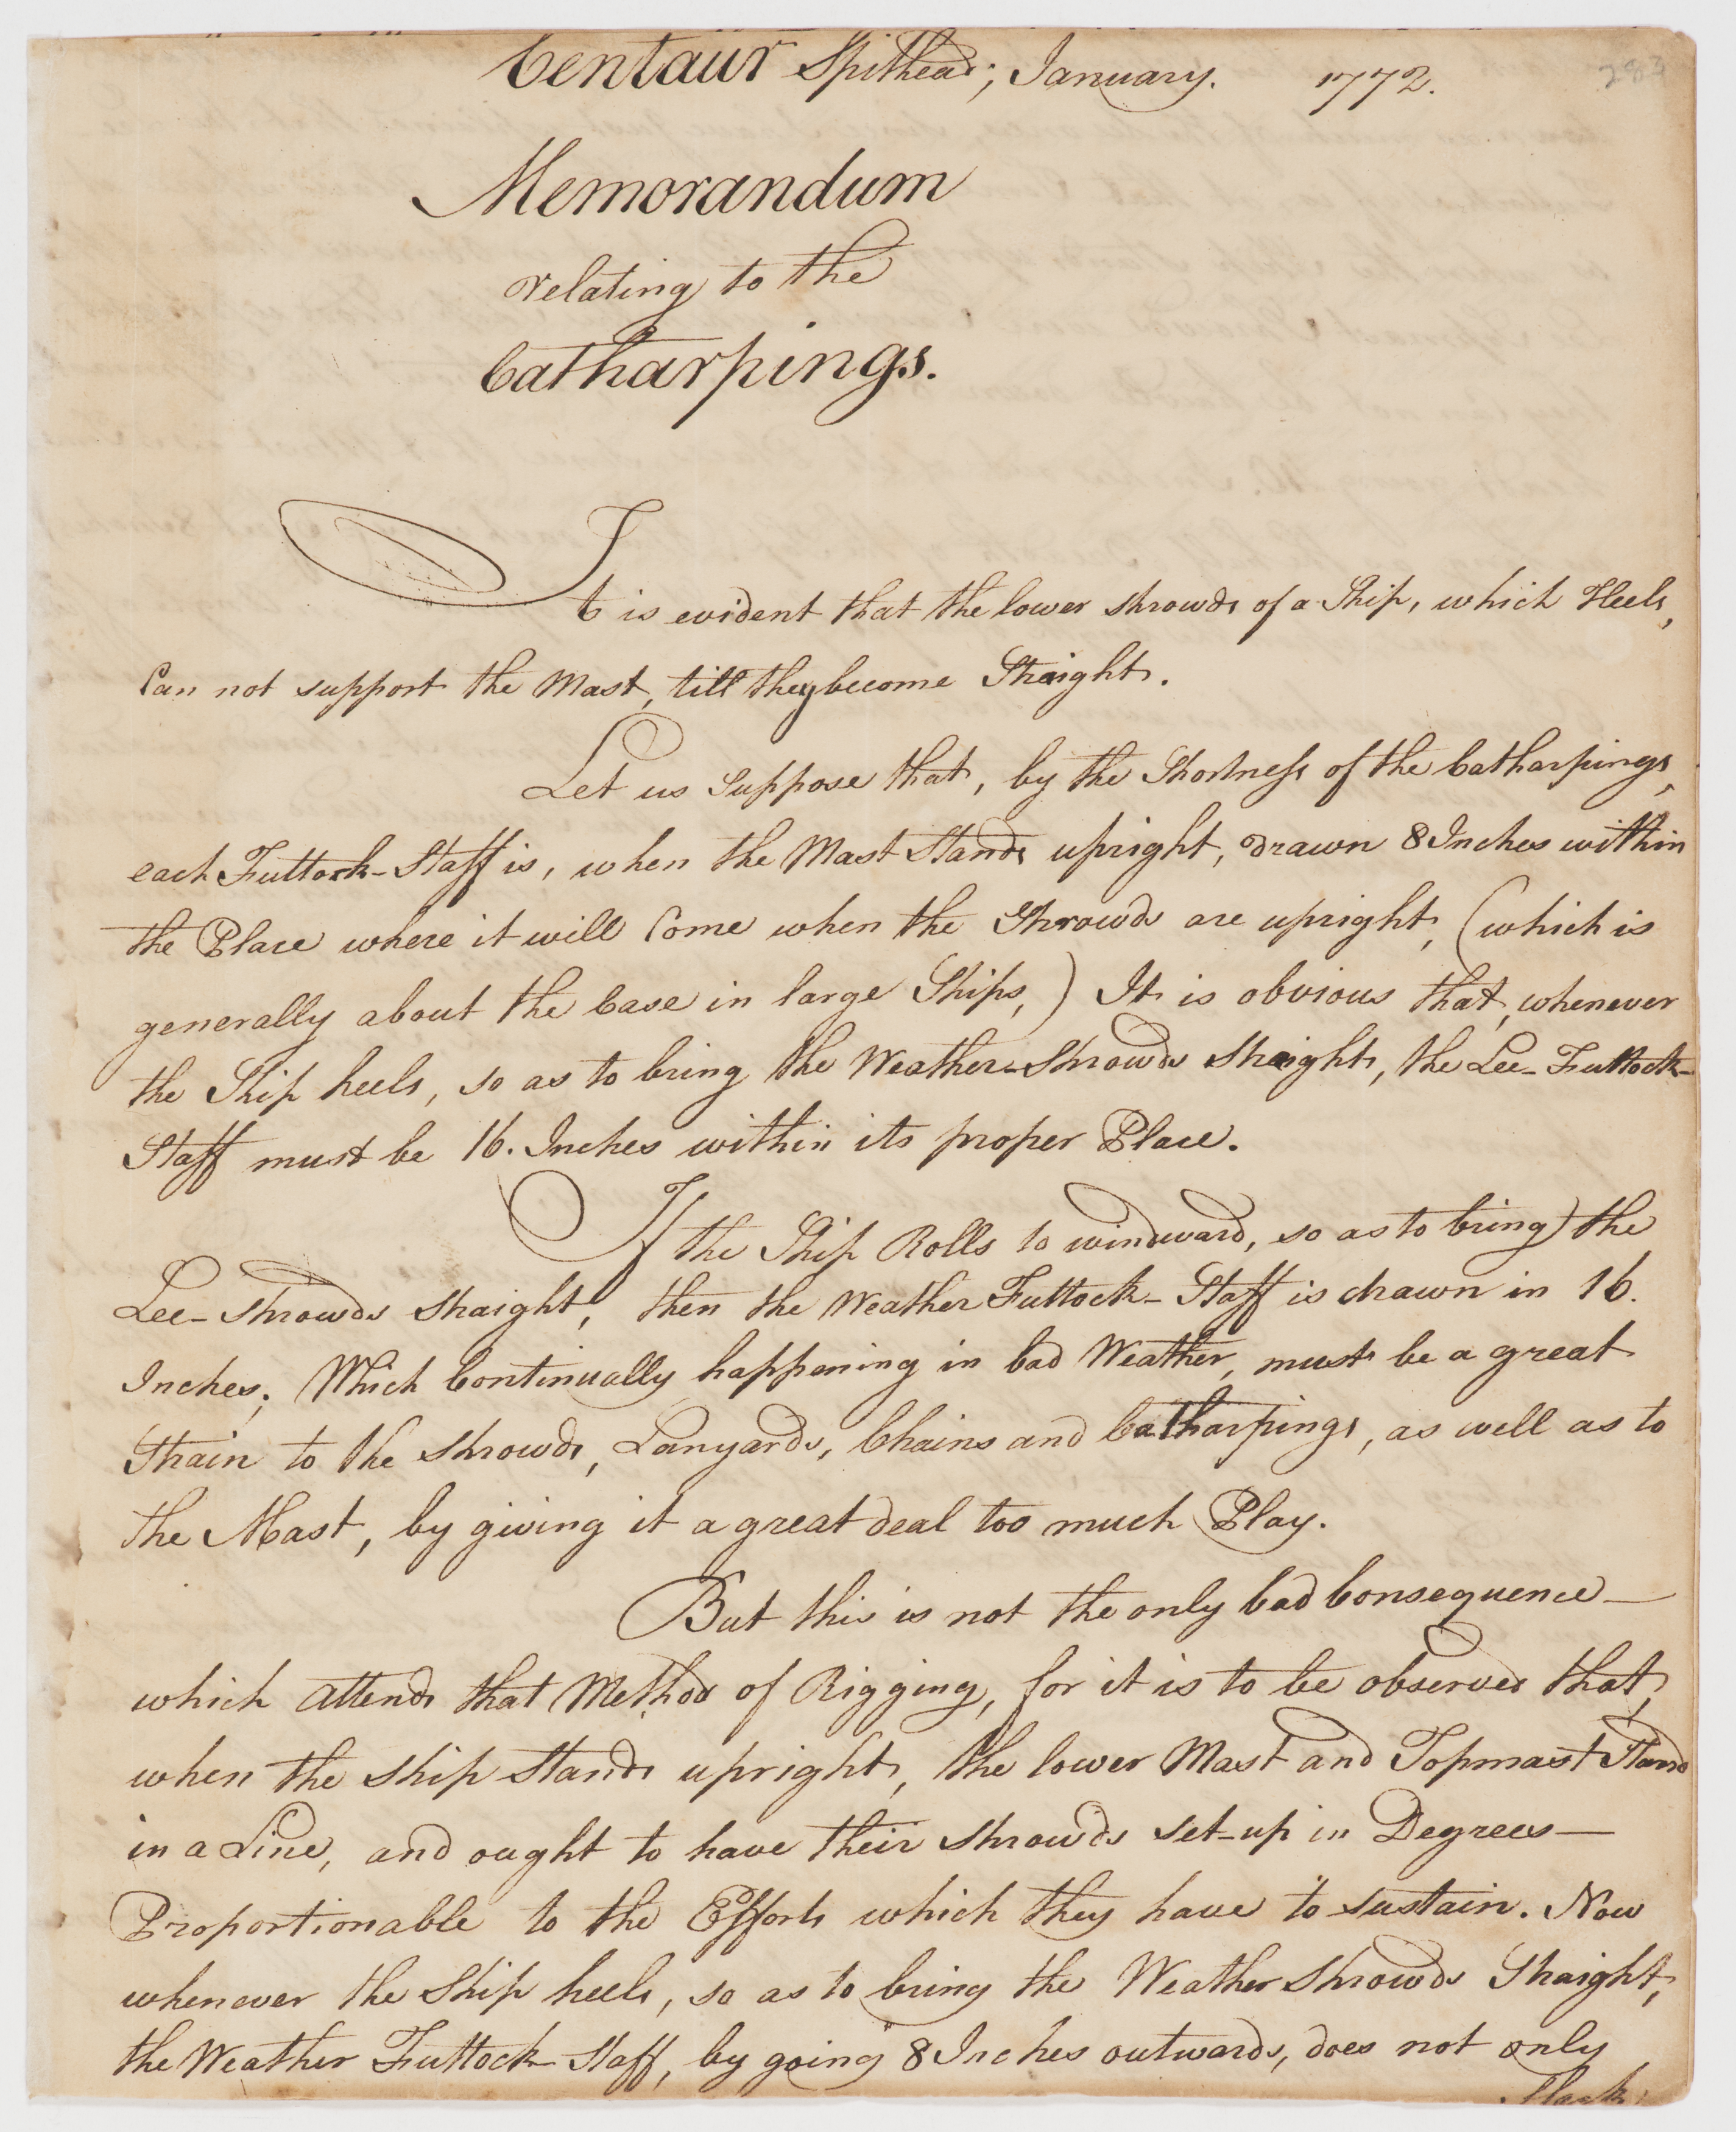 Centaur Spithead; January. 1772.
283
Memorandum
relating to the
Catharpings.
It is evident that the lower shrowds of a Ship, which Heels,
Can not support the Mast, till they become Straight.
Let us Suppose that, by the Shortness of the Catharpings,
each Futtock-Staff is, when the Mast Stands upright, drawn 8 Inches within
the Place where it will Come when the Shrowds are upright, (which is
generally about the Case in large Ships,) It is obvious that, whenever
the Ship heels, so as to bring the Weather-Shrowds Straight, the Lee-Futtock-
Staff must be 16. Inches within its proper Place.
If the Ship Rolls to windward, so as to bring the
Lee-Shrowds straight, then the Weather Futtock-Staff is drawn in 16.
Inches; Which Continually happening in bad Weather, must be a great
Strain to the Shrowds, Lanyards, Chains and Catharpings, as well as to
the Mast, by giving it a great deal too much Play.
But this is not the only bad Consequence—
which attends that Method of Rigging, for it is to be observed that,
when the Ship Stands upright, the lower Mast and Topmast Stand
in a Line, and ought to have their Shrowds set-up in Degrees—
Proportionable to the Efforts which they have to sustain. Now
whenever the Ship heels, so as to bring the Weather Shrowds Straight,
the Weather Futtock-Staff, by going 8 Inches outwards, does not only
Slack